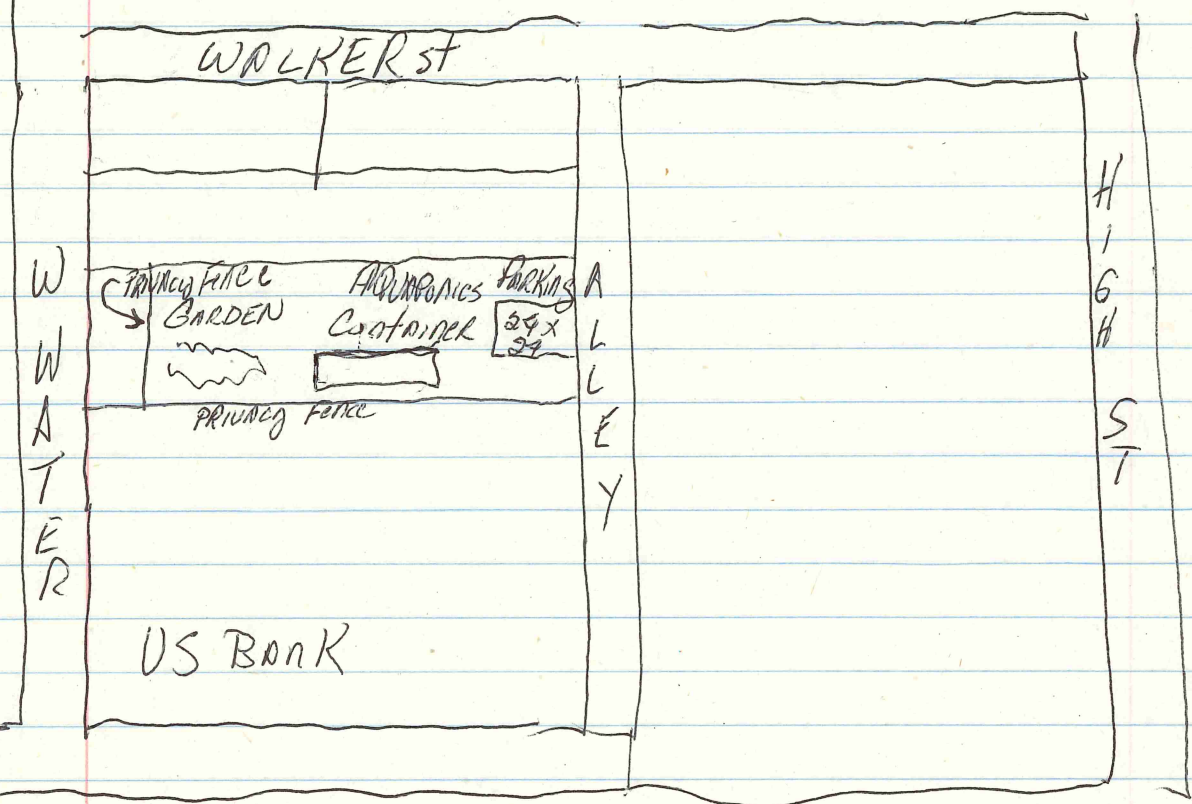 WALKER St
W WATER
PRIVACY FENCE
GARDEN
AAQUAPONICS
Container
PARKING
24 x
24
PRIVACY FENCE
ALLEY
HIGH ST
US BANK